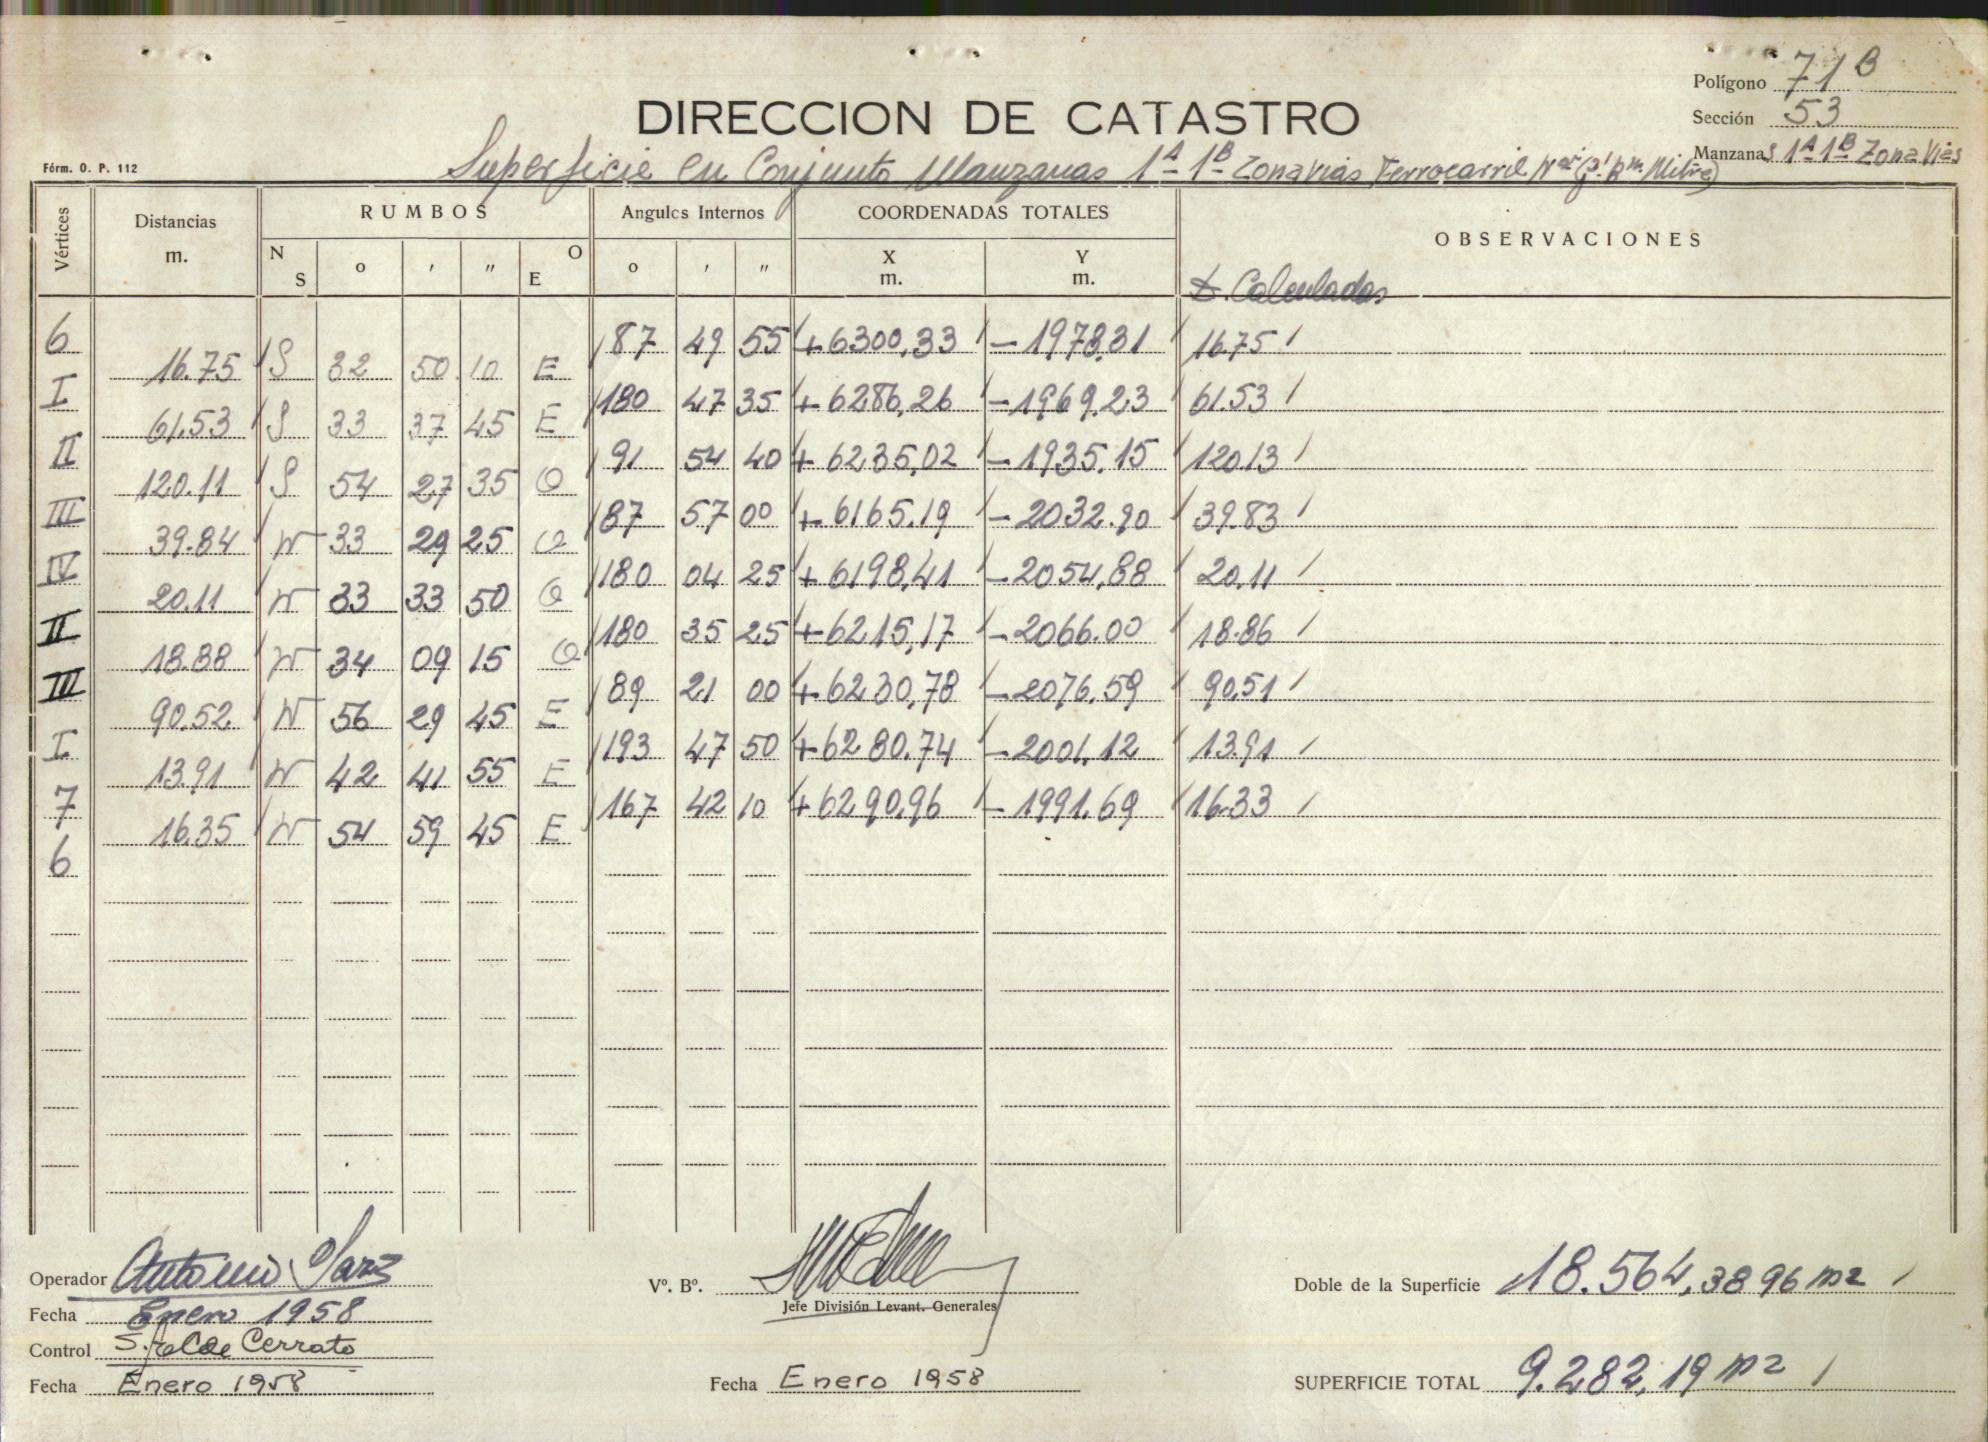 Polígono 71 B
DIRECCION DE CATASTRO
Sección 53
Fórm. O. P. 112
Superficie en Conjunto Manzanas 1A 1B Zona Vias Ferrocarril Mitre)
Manzanas 1A 1B Zona Vias
Vértices Distancias m. RUMBOS N S o ' " O E Angulos Internos o ' " COORDENADAS TOTALES X m. Y m. OBSERVACIONES
D. Calculadas
6 87 49 55 +6300,33 -1978.31 16.75
16.75 S 32 50 10 E
I 180 47 35 +6286,26 -1969.23 61.53
61.53 S 33 37 45 E
II 91 54 40 +6235,02 -1935.15 120.13
120.11 S 54 27 35 O
III 87 57 00 +6165.19 -2032.90 39.83
39.84 N 33 29 25 O
IV 180 04 25 +6198,41 -2054,88 20.11
20.11 N 33 33 50 O
II 180 35 25 +6215,17 -2066.00 18.86
18.88 N 34 09 15 O
III 89 21 00 +6230,78 -2076.59 90.51
90.52 N 56 29 45 E
I 193 47 50 +6280.74 -2001.12 13.91
13.91 N 42 41 55 E
7 167 42 10 +6290.96 -1991.69 16.33
16.35 N 54 59 45 E
6
Operador Antonio
Fecha Enero 1958
Control Cerrato
Fecha Enero 1958
Vº. Bº.
Jefe División Levant. Generales
Fecha Enero 1958
Doble de la Superficie 18.564,3896 m2
SUPERFICIE TOTAL 9.282,19 m2